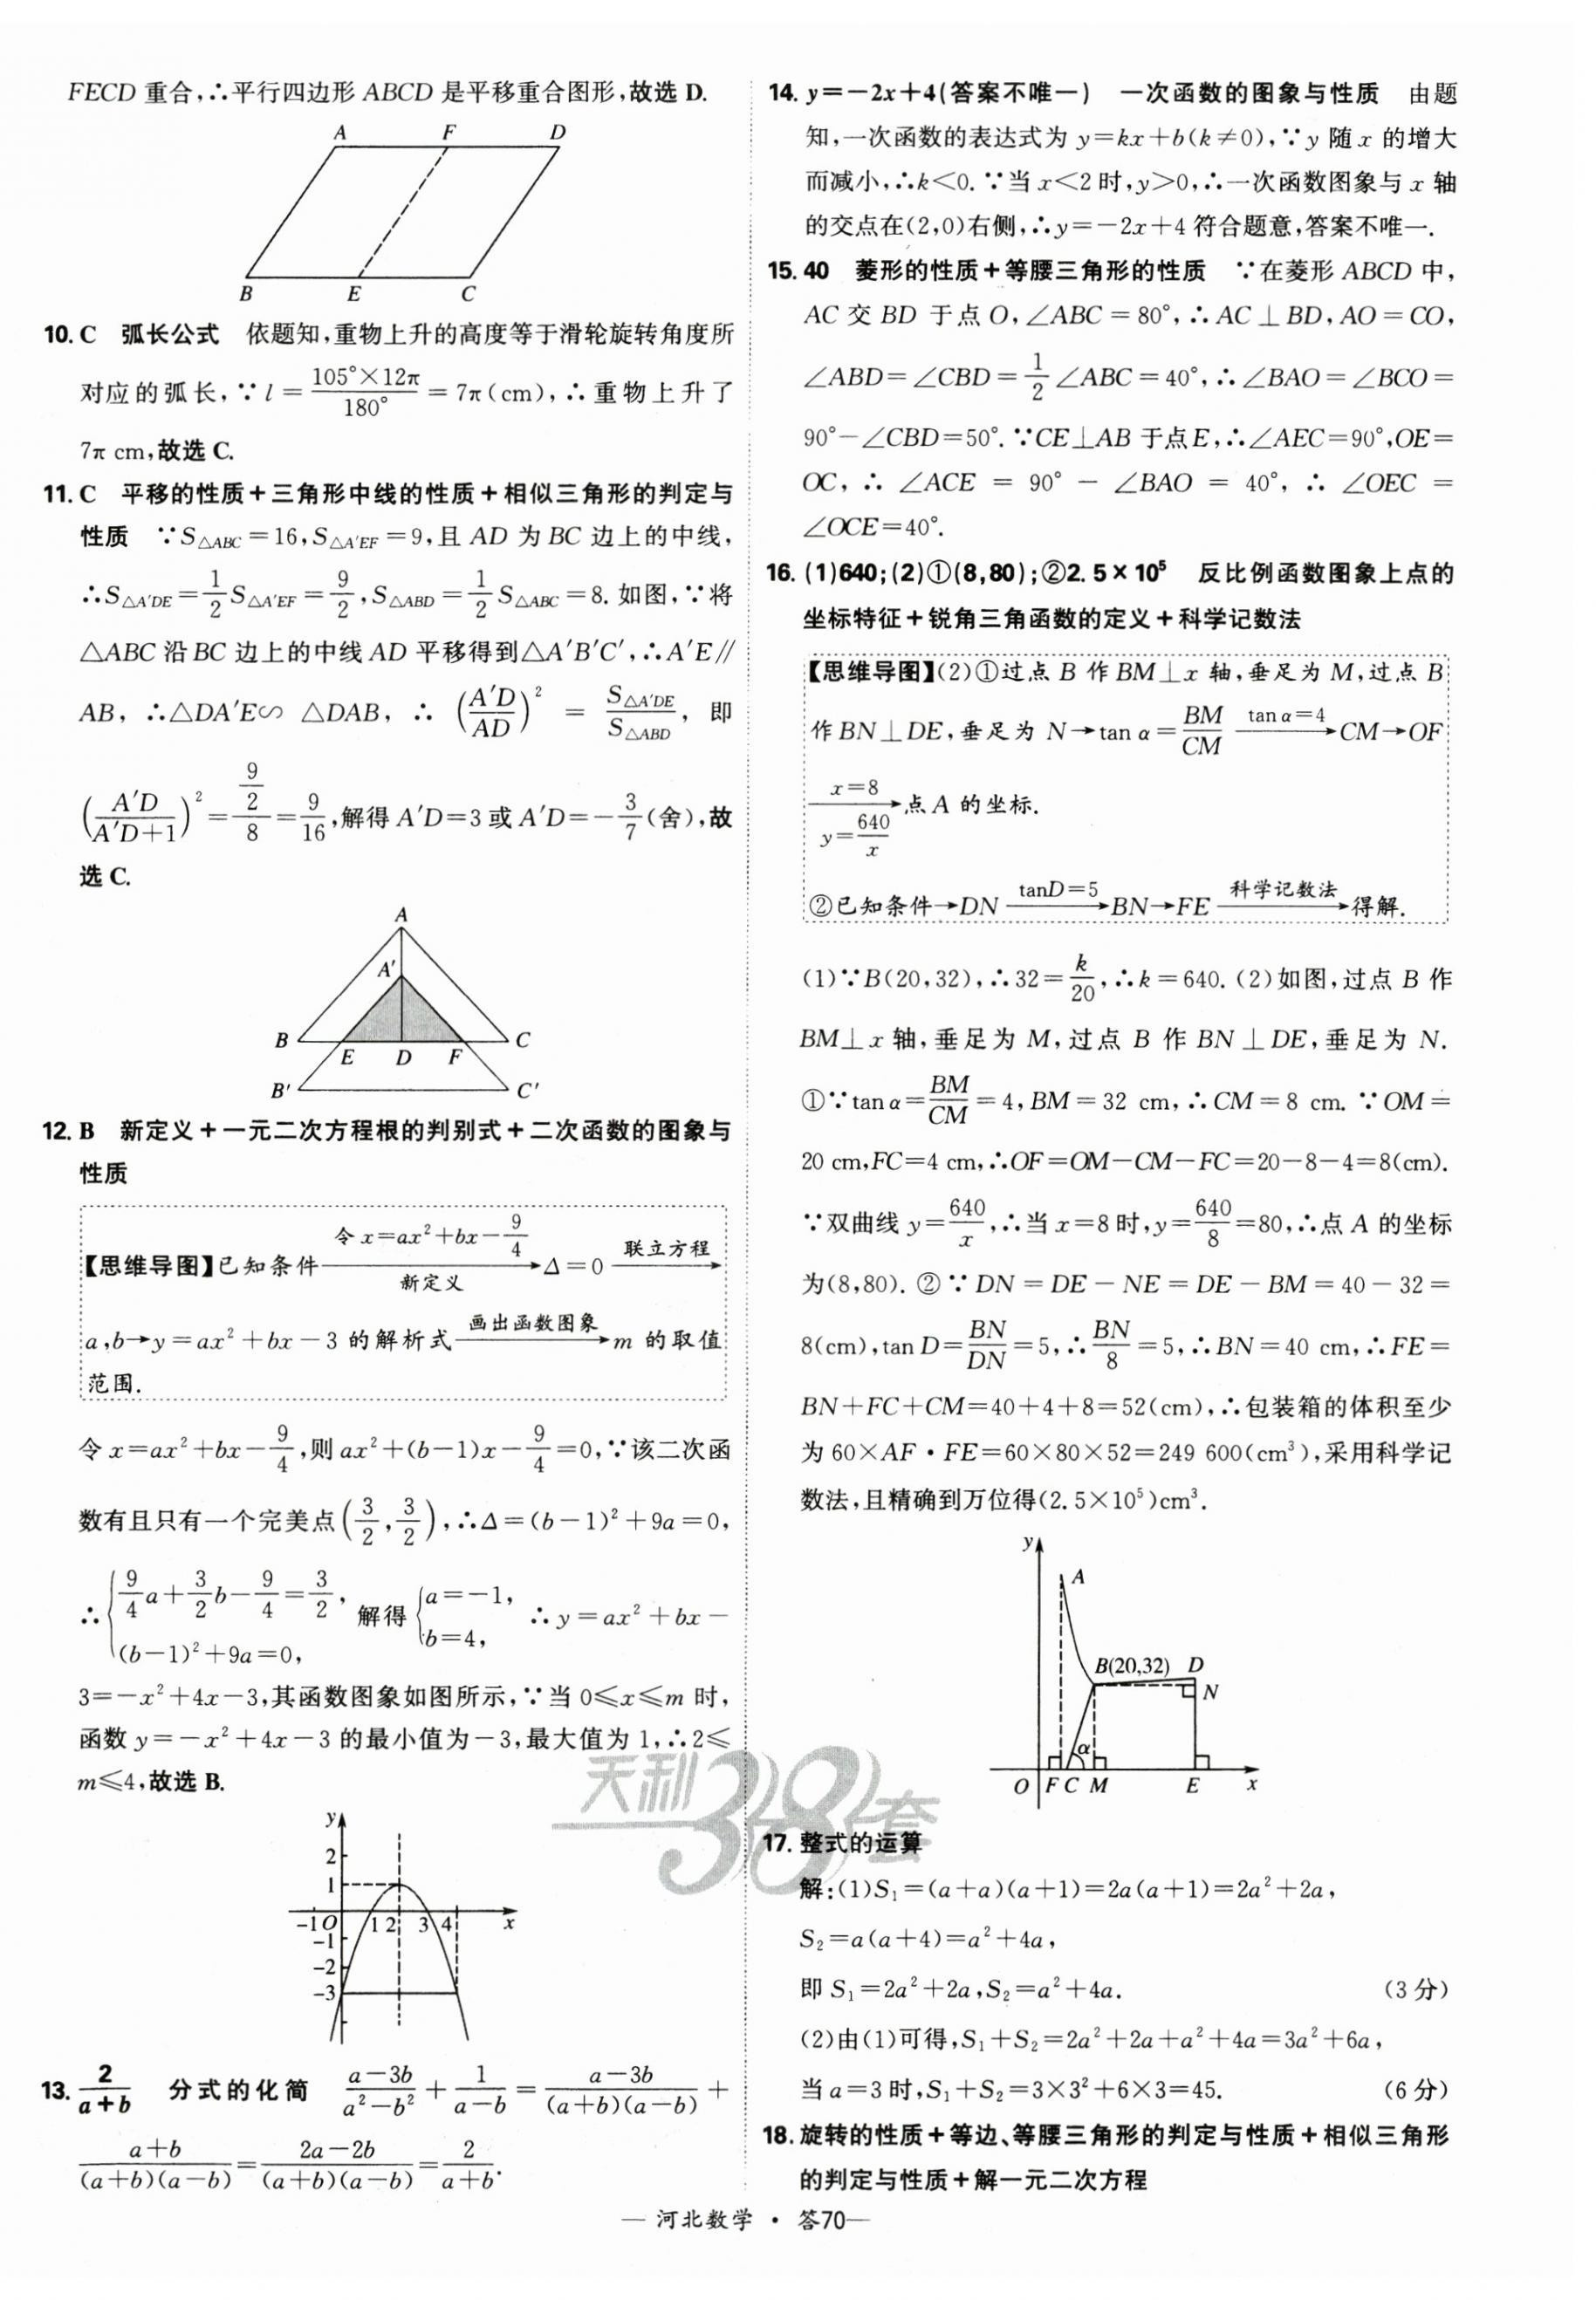 FECD 重合,∴平行四边形 ABCD 是平移重合图形,故选 D.
A F D
B E C
10. C 弧长公式 依题知,重物上升的高度等于滑轮旋转角度所
对应的弧长,∵ l = \frac{105°×12π}{180°} = 7π(cm),∴重物上升了
7π cm,故选 C.
11. C 平移的性质+三角形中线的性质+相似三角形的判定与
性质 ∵S△ABC=16,S△A′EF=9,且 AD 为 BC 边上的中线,
∴S△A′DE=\frac{1}{2}S△A′EF=\frac{9}{2},S△ABD=\frac{1}{2}S△ABC=8. 如图,∵将
△ABC 沿 BC 边上的中线 AD 平移得到△A′B′C′,∴A′E∥
AB, ∴△DA′E∽ △DAB, ∴ (\frac{A′D}{AD})² = \frac{S△A′DE}{S△ABD}, 即
(\frac{A′D}{A′D+1})²=\frac{\frac{9}{2}}{8}=\frac{9}{16},解得 A′D=3 或 A′D=-\frac{3}{7}(舍),故
选 C.
A
A′
B C
E D F
B′ C′
12. B 新定义+一元二次方程根的判别式+二次函数的图象与
性质
【思维导图】已知条件 \xrightarrow[新定义]{令 x=ax²+bx-\frac{9}{4}} Δ=0 \xrightarrow{联立方程}
a,b→y=ax²+bx-3 的解析式 \xrightarrow{画出函数图象} m 的取值
范围.
令 x=ax²+bx-\frac{9}{4},则 ax²+(b-1)x-\frac{9}{4}=0,∵该二次函
数有且只有一个完美点(\frac{3}{2},\frac{3}{2}),∴Δ=(b-1)²+9a=0,
∴{\frac{9}{4}a+\frac{3}{2}b-\frac{9}{4}=\frac{3}{2}, (b-1)²+9a=0, 解得{a=-1, b=4, ∴y=ax²+bx-
3=-x²+4x-3,其函数图象如图所示,∵当 0≤x≤m 时,
函数 y=-x²+4x-3 的最小值为-3,最大值为 1,∴2≤
m≤4,故选 B.
y
2
1
-1 O 1 2 3 4 x
-1
-2
-3
13. \frac{2}{a+b} 分式的化简 \frac{a-3b}{a²-b²}+\frac{1}{a-b}=\frac{a-3b}{(a+b)(a-b)}+
\frac{a+b}{(a+b)(a-b)}=\frac{2a-2b}{(a+b)(a-b)}=\frac{2}{a+b}.
14. y=-2x+4(答案不唯一) 一次函数的图象与性质 由题
知,一次函数的表达式为 y=kx+b(k≠0),∵y 随 x 的增大
而减小,∴k<0. ∵当 x<2 时,y>0,∴一次函数图象与 x 轴
的交点在(2,0)右侧,∴y=-2x+4 符合题意,答案不唯一.
15. 40 菱形的性质+等腰三角形的性质 ∵在菱形 ABCD 中,
AC 交 BD 于点 O,∠ABC=80°,∴AC⊥BD,AO=CO,
∠ABD=∠CBD=\frac{1}{2}∠ABC=40°,∴∠BAO=∠BCO=
90°-∠CBD=50°. ∵CE⊥AB 于点 E,∴∠AEC=90°,OE=
OC, ∴ ∠ACE = 90° - ∠BAO = 40°, ∴ ∠OEC =
∠OCE=40°.
16. (1)640;(2)①(8,80);②2.5×10⁵ 反比例函数图象上点的
坐标特征+锐角三角函数的定义+科学记数法
【思维导图】(2)①过点 B 作 BM⊥x 轴,垂足为 M,过点 B
作 BN⊥DE,垂足为 N→tan α=\frac{BM}{CM} \xrightarrow{tan α=4} CM→OF
\xrightarrow[y=\frac{640}{x}]{x=8} 点 A 的坐标.
②已知条件→DN \xrightarrow{tanD=5} BN→FE \xrightarrow{科学记数法} 得解.
(1)∵B(20,32),∴32=\frac{k}{20},∴k=640. (2)如图,过点 B 作
BM⊥x 轴,垂足为 M,过点 B 作 BN⊥DE,垂足为 N.
①∵tan α=\frac{BM}{CM}=4,BM=32 cm,∴CM=8 cm. ∵OM=
20 cm,FC=4 cm,∴OF=OM-CM-FC=20-8-4=8(cm).
∵双曲线 y=\frac{640}{x},∴当 x=8 时,y=\frac{640}{8}=80,∴点 A 的坐标
为(8,80). ②∵DN=DE-NE=DE-BM=40-32=
8(cm),tan D=\frac{BN}{DN}=5,∴\frac{BN}{8}=5,∴BN=40 cm,∴FE=
BN+FC+CM=40+4+8=52(cm),∴包装箱的体积至少
为 60×AF·FE=60×80×52=249 600(cm³),采用科学记
数法,且精确到万位得(2.5×10⁵)cm³.
y
A
B(20,32) D
N
α
O F C M E x
天利38套
17. 整式的运算
解:(1)S₁=(a+a)(a+1)=2a(a+1)=2a²+2a,
S₂=a(a+4)=a²+4a,
即 S₁=2a²+2a,S₂=a²+4a. (3 分)
(2)由(1)可得,S₁+S₂=2a²+2a+a²+4a=3a²+6a,
当 a=3 时,S₁+S₂=3×3²+6×3=45. (6 分)
18. 旋转的性质+等边、等腰三角形的判定与性质+相似三角形
的判定与性质+解一元二次方程
— 河北数学 · 答70—